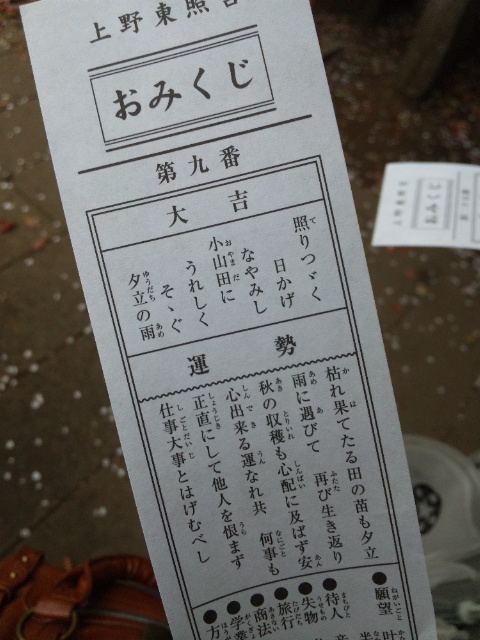 上野東照宮
おみくじ
第九番
大吉
照りつゞく
日かげ
なやみし
小山田に
うれしく
そゝぐ
夕立の雨
運勢
枯れ果てたる田の苗も夕立
雨に遇びて 再び生き返り
秋の収穫も心配に及ばず安
心出来る運なれ共 何事も
正直にして他人を恨まず
仕事大事とはげむべし
●願望
●待人
●失物
●旅行
●商法
●学業
●方